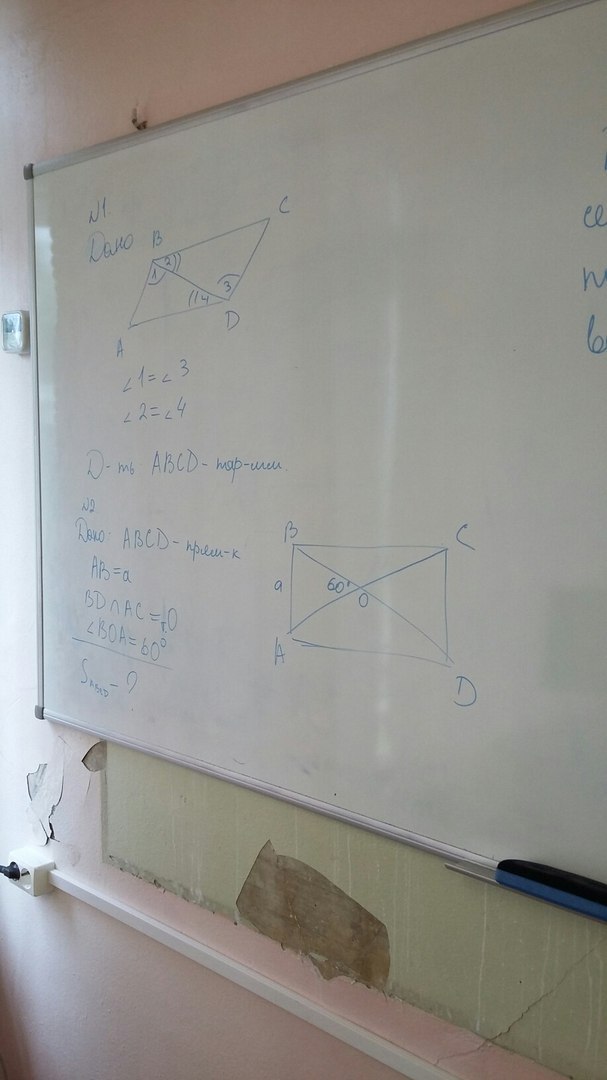 N1.
Дано
B
C
1
2
3
4
A
D
∠1=∠3
∠2=∠4
Д-ть: ABCD - пар-мм.
N2
Дано: ABCD - прям-к
AB=a
BD∩AC=т.O
∠BOA=60°
S_ABCD - ?
B
C
a
60°
O
A
D